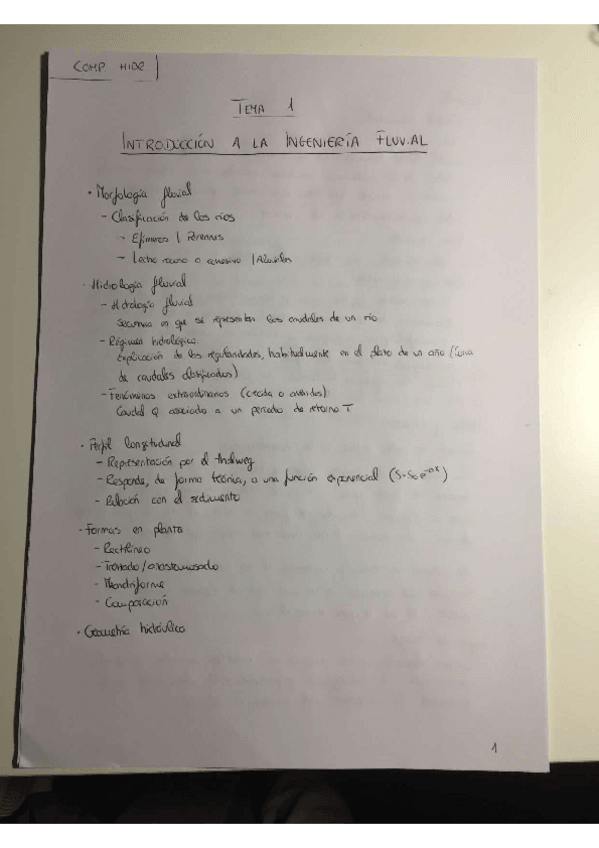 COMP HIDR
TEMA 1
INTRODUCCIÓN A LA INGENIERÍA FLUVIAL
· Morfología fluvial
- Clasificación de los ríos
- Efímeros | Perennes
- Lecho rocoso o cohesivo | Aluviales
· Hidrología fluvial
- Hidrología fluvial
Secuencia en que se representan los caudales de un río
- Régimen hidrológico:
Explicación de las regularidades, habitualmente en el plazo de un año (curva
de caudales clasificados)
- Fenómenos extraordinarios (crecida o avenidas):
Caudal Q asociado a un periodo de retorno T
· Perfil longitudinal
- Representación por el thalweg
- Responde, de forma teórica, a una función exponencial (S=S₀e⁻ᵅˣ)
- Relación con el sedimento
· Formas en planta
- Rectilíneo
- Trenzado/anastomosado
- Meandriforme
- Comparación
· Geometría hidráulica
1